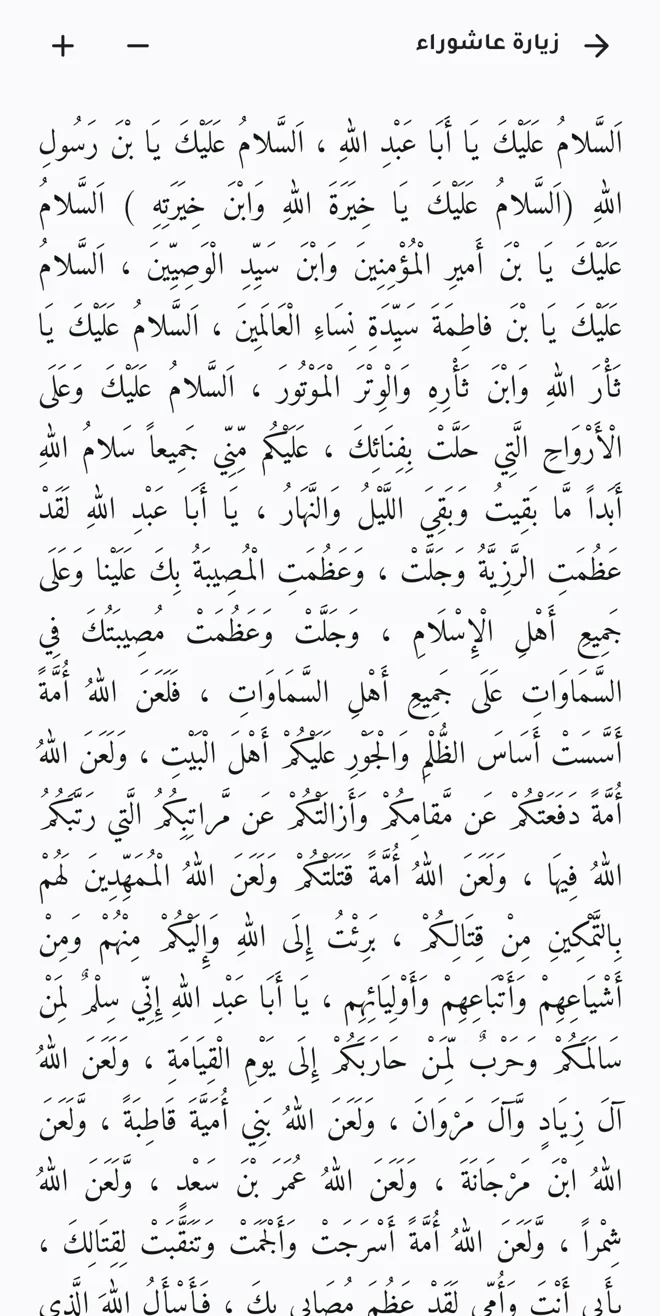 زيارة عاشوراء
اَلسَّلامُ عَلَيْكَ يَا أَبَا عَبْدِ اللهِ ، اَلسَّلامُ عَلَيْكَ يَا بْنَ رَسُولِ
اللهِ (اَلسَّلامُ عَلَيْكَ يَا خِيَرَةَ اللهِ وَابْنَ خِيَرَتِهِ ) اَلسَّلامُ
عَلَيْكَ يَا بْنَ أَميرِ الْمُؤْمِنِينَ وَابْنَ سَيِّدِ الْوَصِيِّينَ ، اَلسَّلامُ
عَلَيْكَ يَا بْنَ فاطِمَةَ سَيِّدَةِ نِسَاءِ الْعَالَمِينَ ، اَلسَّلامُ عَلَيْكَ يَا
ثَأْرَ اللهِ وَابْنَ ثَأْرِهِ وَالْوِتْرَ الْمَوْتُورَ ، اَلسَّلامُ عَلَيْكَ وَعَلَى
الْأَرْوَاحِ الَّتِي حَلَّتْ بِفِنَائِكَ ، عَلَيْكُم مِّنّي جَمِيعاً سَلامُ اللهِ
أَبَداً مَّا بَقِيتُ وَبَقِيَ اللَّيْلُ وَالنَّهَارُ ، يَا أَبَا عَبْدِ اللهِ لَقَدْ
عَظُمَتِ الرَّزِيَّةُ وَجَلَّتْ ، وَعَظُمَتِ الْمُصِيبَةُ بِكَ عَلَيْنا وَعَلَى
جَمِيعِ أَهْلِ الْإِسْلَامِ ، وَجَلَّتْ وَعَظُمَتْ مُصِيبَتُكَ فِي
السَّمَاوَاتِ عَلَى جَمِيعِ أَهْلِ السَّمَاوَاتِ ، فَلَعَنَ اللهُ أُمَّةً
أَسَّسَتْ أَسَاسَ الظُّلْمِ وَالْجَوْرِ عَلَيْكُمْ أَهْلَ الْبَيْتِ ، وَلَعَنَ اللهُ
أُمَّةً دَفَعَتْكُمْ عَن مَّقامِكُمْ وَأَزالَتْكُمْ عَن مَّراتِبِكُمُ الَّتي رَتَّبَكُمُ
اللهُ فِيهَا ، وَلَعَنَ اللهُ أُمَّةً قَتَلَتْكُمْ وَلَعَنَ اللهُ الْمُمَهِّدِينَ لَهُمْ
بِالتَّمْكِينِ مِنْ قِتَالِكُمْ ، بَرِئْتُ إِلَى اللهِ وَإِلَيْكُمْ مِنْهُمْ وَمِنْ
أَشْيَاعِهِمْ وَأَتْبَاعِهِمْ وَأَوْلِيَائِهِم ، يَا أَبَا عَبْدِ اللهِ إِنّي سِلْمٌ لِمَنْ
سَالَمَكُمْ وَحَرْبٌ لِّمَنْ حَارَبَكُمْ إِلَى يَوْمِ الْقِيَامَةِ ، وَلَعَنَ اللهُ
آلَ زِيَادٍ وَّآلَ مَرْوَانَ ، وَلَعَنَ اللهُ بَنِي أُمَيَّةَ قَاطِبَةً ، وَّلَعَنَ
اللهُ ابْنَ مَرْجَانَةَ ، وَلَعَنَ اللهُ عُمَرَ بْنَ سَعْدٍ ، وَّلَعَنَ اللهُ
شِمْراً ، وَّلَعَنَ اللهُ أُمَّةً أَسْرَجَتْ وَأَلْجَمَتْ وَتَنَقَّبَتْ لِقِتَالِكَ ،
بِأَبِي أَنْتَ وَأُمّي لَقَدْ عَظُمَ مُصَابِي بِكَ ، فَأَسْأَلُ اللهَ الَّذِي